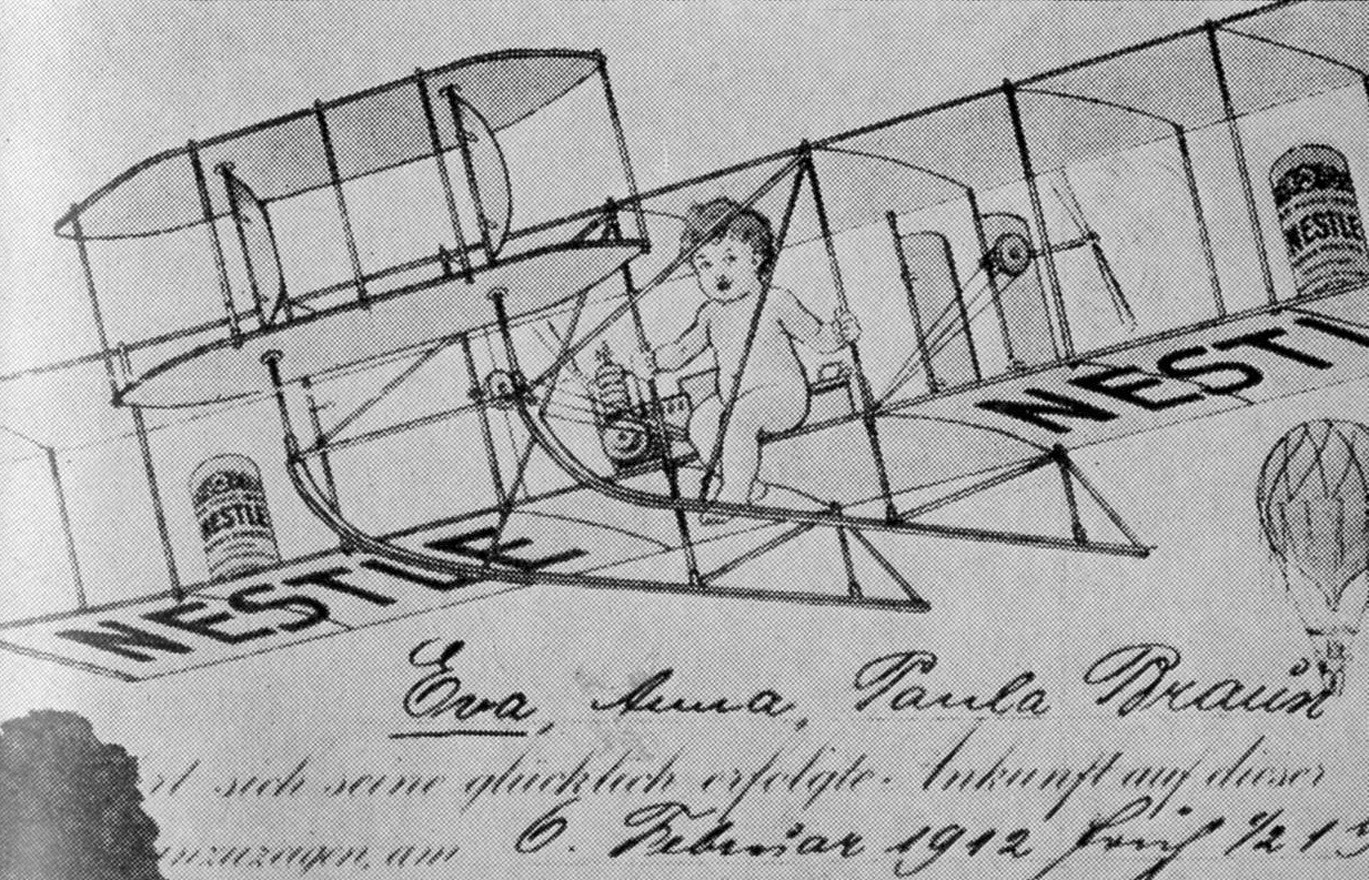 NESTLE
NESTL
NESTLE
NESTLE
Eva, Anna, Paula Braun
sich seine glücklich erfolgte Ankunft auf dieser
anzuzagen, am 6. Februar 1912 früh ½ 13